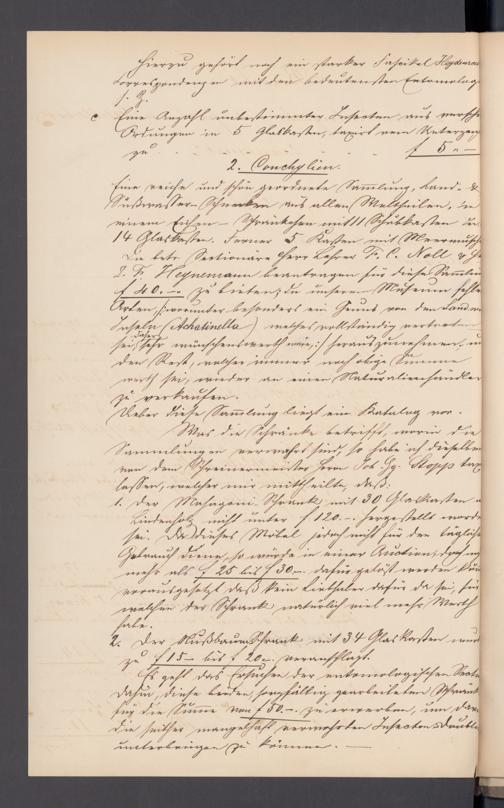 Hierzu gehört noch ein starker Fascikel Heydenreich
Correspondenzen mit den bedeutensten Entomologe
s. Z.
c Eine Anzahl unbestimmter Insecten aus versch
Ordnungen in 5 Glaskasten, taxirt vom Unterzeich
zu f 5.-
2. Conchylien.
Eine reiche und schön geordnete Sammlung, Land- &
Süßwasser-Schnecken aus allen Welttheilen, in
einem Eichen-Schränkchen mit 11 Schubkasten u
14 Glaskasten. Ferner 5 Kasten mit Meermusch
Die betr. Sectionäre Herr Lehrer F. C. Noll &
D. F. Heynemann beantragen für diese Sammlu
f 40.- zu bieten, da unserm Museum fehle
Arten /: worunter besonders ein Genus von den Sandwi
Inseln (Achatinella) welches vollständig vertreten
sei, daher sehr wünschenswerth wäre :/ herauszunehmen, u
den Rest, welcher immer noch obige Summe
werth sei, wieder an einen Naturalienhändler
zu verkaufen.
Ueber diese Sammlung liegt ein Katalog vor.
Was die Schränke betrifft, worin die
Sammlungen verwahrt sind, so habe ich dieselben
von dem Schreinermeister Herrn Joh. Gg. Stopp tax
lassen, welcher mir mittheilte, daß:
1. Der Mahagoni Schrank mit 30 Glaskasten
Lindenholz nicht unter f 120.- hergestellt worde
sei. Da dieses Möbel jedoch nicht für den täglich
Gebrauch diene, so würde in einer Auction doch n
mehr als f 25 bis f 30.- dafür gelöst werden kön
vorausgesetzt daß kein Liebhaber dafür da sei, für
welchen der Schrank natürlich viel mehr Werth
habe.
2. Der Nußbaum Schrank mit 34 Glaskasten wird
zu f 15- bis f 20.- veranschlagt.
Es geht das Ersuchen der entomologischen Secti
dahin, diese beiden sorgfältig gearbeiteten Schränk
für die Summe von f 50.- zu erwerben, um dar
die seither mangelhaft verwahrten Insecten Doubl
unterbringen zu können. -